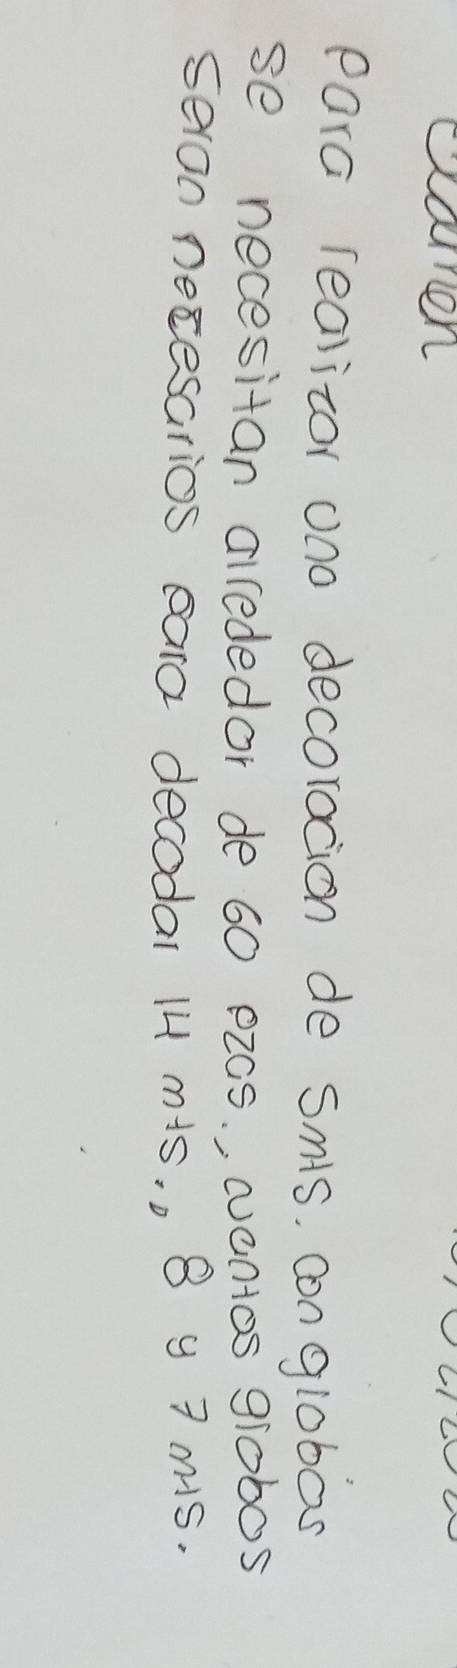 Examen
Para realizar una decoracion de 5mts. con globos
se necesitan alrededor de 60 pzas., cuantos globos
seran necesarios para decodar 14 mts., 8 y 7 mts.